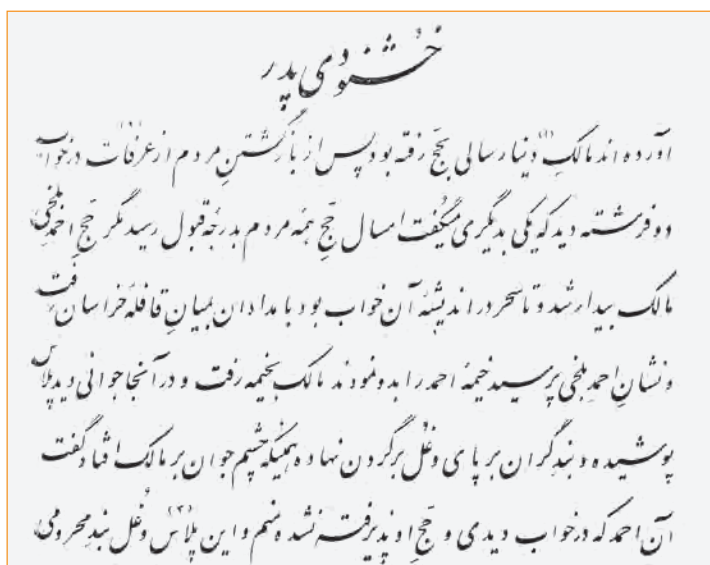 خشنودی پدر
آورده‌اند مالکِ (۱) دینار سالی بحج رفته بود پس از بازگشتنِ مردم از عرفات (۲) در خواب
دو فرشته دید که یکی بدیگری میگفت امسال حجِ همه مردم بدرجهٔ قبول رسید مگر حجِ احمدِ بلخی
مالک بیدار شد و تا سحر در اندیشهٔ آن خواب بود بامدادان بمیانِ قافلهٔ خراسان رفت
و نشانِ احمدِ بلخی پرسید خیمهٔ احمد را بدو نمودند مالک بخیمه رفت و در آنجا جوانی دید پلاس
پوشیده و بندِ گران بر پای و غُل بر گردن نهاده همینکه چشمِ جوان بر مالک افتاد گفت
آن احمد که در خواب دیدی و حجِ او پذیرفته نشده منم و این پلاس (۳) و غُل بندِ محرومی